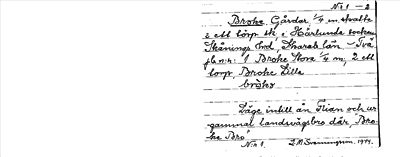 Nr 1 – 2
Broke Gårdar, 1/4 m skatte
& ett torp sk, i Härlunda socken
Skånings hrd, Skarab. län – Två
jb.n:r: 1 Broke Stora 1/4 m; 2 ett
torp, Broke Lilla
bròkɜ
Läge intill ån Flian och ur-
gammal landsvägsbro där "Bro-
ke Bro"
Nr 1. 1944.